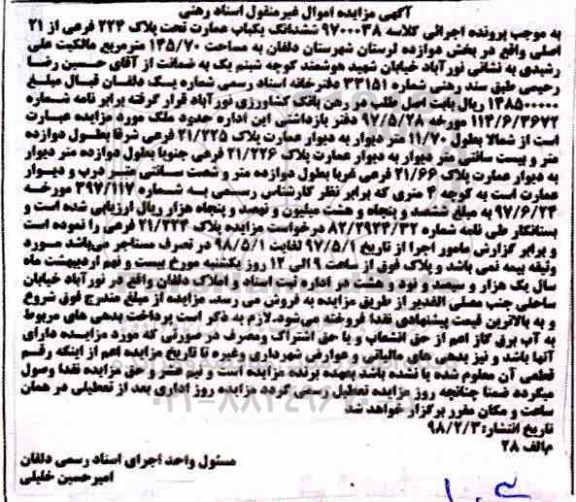 آگهی مزایده اموال غیرمنقول اسناد رهنی
به موجب پرونده اجرائی کلاسه ۹۷۰۰۰۳۸ ششدانگ یکباب عمارت تحت پلاک ۲۲۴ فرعی از ۲۱
اصلی واقع در بخش دوازده لرستان شهرستان دلفان به مساحت ۱۴۵/۷۰ مترمربع مالکیت علی
رشیدی به نشانی نورآباد خیابان شهید هوشمند کوچه شبنم یک به ضمانت از آقای حسین رضا
رحیمی طبق سند رهنی شماره ۳۳۱۵۱ دفترخانه اسناد رسمی شماره یک دلفان قبال مبلغ
۱۳۸۵۰۰۰۰۰ ریال بابت اصل طلب در رهن بانک کشاورزی نورآباد قرار گرفته برابر نامه شماره
۱۱۴/۶/۳۶۷۲ مورخه ۹۷/۵/۲۸ دفتر بازداشتی این اداره حدود ملک مورد مزایده عبارت
است از شمالا بطول ۱۱/۷۰ متر دیوار به دیوار عمارت پلاک ۲۱/۲۲۵ فرعی شرقا بطول دوازده
متر و بیست سانتی متر دیوار به دیوار عمارت پلاک ۲۱/۲۲۶ فرعی جنوبا بطول دوازده متر دیوار
به دیوار عمارت پلاک ۲۱/۶۶ فرعی غربا بطول دوازده متر و شصت سانتی متر درب و دیوار
عمارت است به کوچه ۴ متری که برابر نظر کارشناس رسمی به شماره ۳۹۷/۱۱۷ مورخه
۹۷/۶/۲۴ به مبلغ ششصد و پنجاه و هشت میلیون و نهصد و پنجاه هزار ریال ارزیابی شده است و
بستانکار طی نامه شماره ۸۲/۲۹۲۴/۳۲ درخواست مزایده پلاک ۲۱/۲۲۴ فرعی را نموده است
و برابر گزارش مامور اجرا از تاریخ ۹۷/۵/۱ لغایت ۹۸/۵/۱ در تصرف مستاجر می‌باشد مورد
وثیقه بیمه نمی باشد و پلاک فوق از ساعت ۹ الی ۱۲ روز یکشنبه مورخ بیست و نهم اردیبهشت ماه
سال یک هزار و سیصد و نود و هشت در اداره ثبت اسناد و املاک دلفان واقع در نورآباد خیابان
ساحلی جنب مصلی الغدیر از طریق مزایده به فروش می رسد. مزایده از مبلغ مندرج فوق شروع
و به بالاترین قیمت پیشنهادی نقدا فروخته می‌شود.لازم به ذکر است پرداخت بدهی های مربوط
به آب برق گاز اعم از حق انشعاب و یا حق اشتراک ومصرف در صورتی که مورد مزایده دارای
آنها باشد و نیز بدهی های مالیاتی و عوارض شهرداری وغیره تا تاریخ مزایده اعم از اینکه رقم
قطعی آن معلوم شده یا نشده باشد بعهده برنده مزایده است و نیم عشر و حق مزایده نقدا وصول
میگردد ضمنا چنانچه روز مزایده تعطیل رسمی گردد مزایده روز اداری بعد از تعطیلی در همان
ساعت و مکان مقرر برگزار خواهد شد
تاریخ انتشار: ۹۸/۲/۳
م‌الف ۲۸
مسئول واحد اجرای اسناد رسمی دلفان
امیرحسین خلیلی